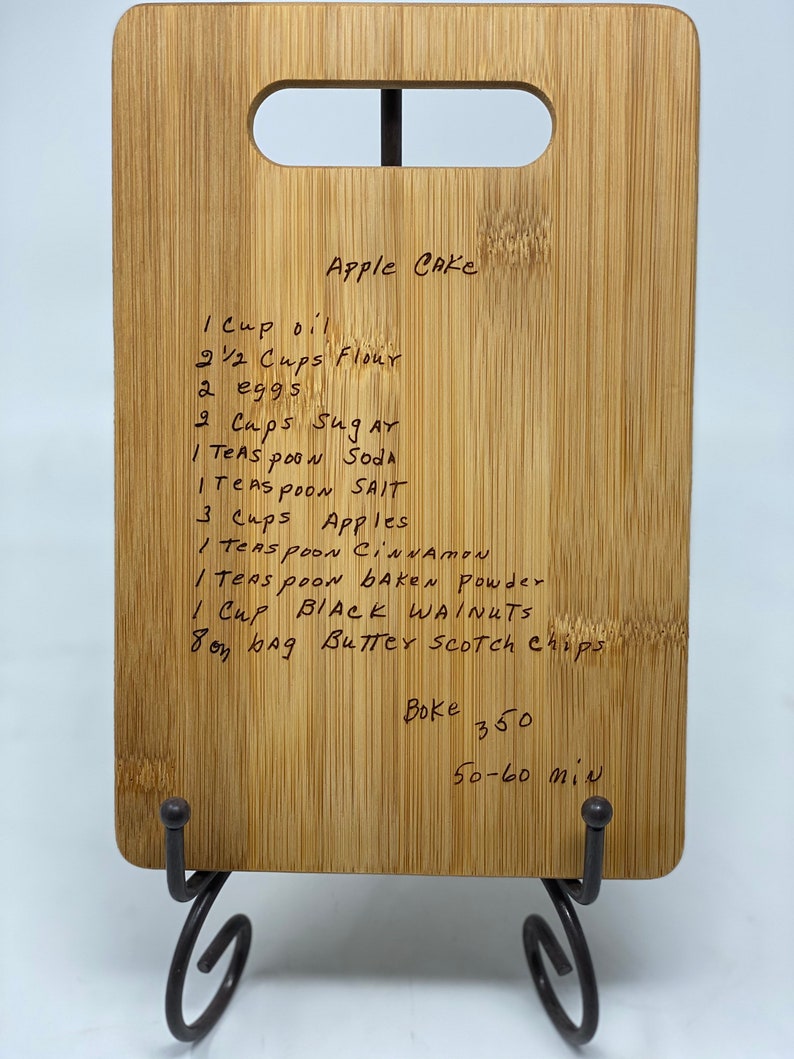 Apple CAKe
1 Cup oil
2 1/2 Cups Flour
2 eggs
2 Cups Sugar
1 Teaspoon Soda
1 Teaspoon SAlT
3 Cups Apples
1 Teaspoon Cinnamon
1 Teaspoon bAKen powder
1 Cup BlAcK WAlnuTs
8 oz bag Butter scotch chips
Boke 350
50-60 min